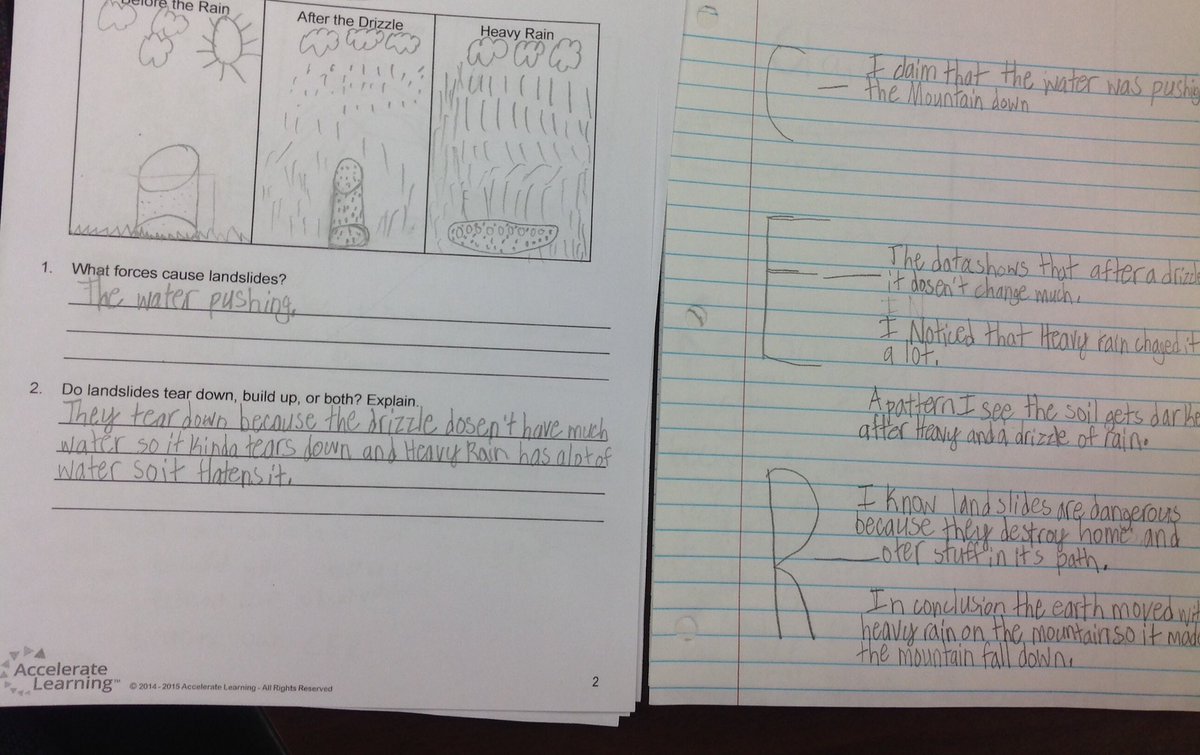 Before the Rain
After the Drizzle
Heavy Rain
1. What forces cause landslides?
The water pushing.
2. Do landslides tear down, build up, or both? Explain.
They tear down because the drizzle dosen't have much
water so it kinda tears down and Heavy Rain has alot of
water so it flatens it.
Accelerate
Learning™ © 2014 - 2015 Accelerate Learning - All Rights Reserved
2
C — I claim that the water was pushing
the Mountain down
E — The data shows that after a drizzle
it dosen't change much.
I Noticed that Heavy rain chaged it
a lot.
A pattern I see the soil gets darke
after Heavy and a drizzle of rain.
R — I know landslides are dangerous
because they destroy home and
oter stuff in it's path.
In conclusion the earth moved wit
heavy rain on the mountain so it made
the mountain fall down.